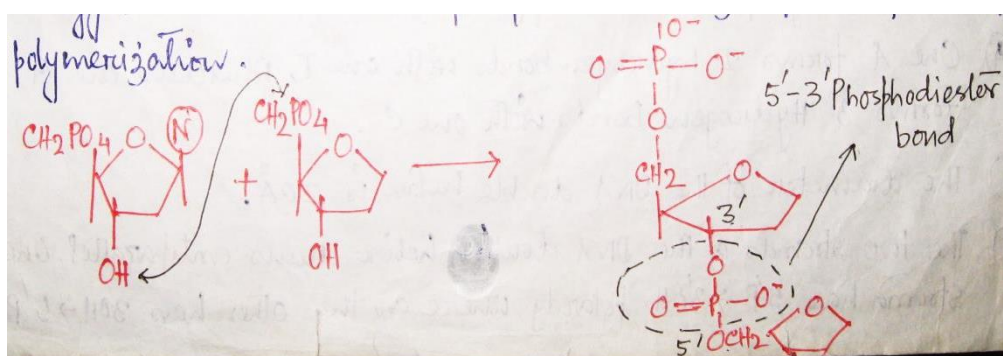 polymerization.
CH2PO4 O N
+
CH2PO4 O
OH
OH
|O-
O=P-O-
O
CH2 O
3'
O
O=P-O-
5' OCH2 O
5'-3' Phosphodiester
bond